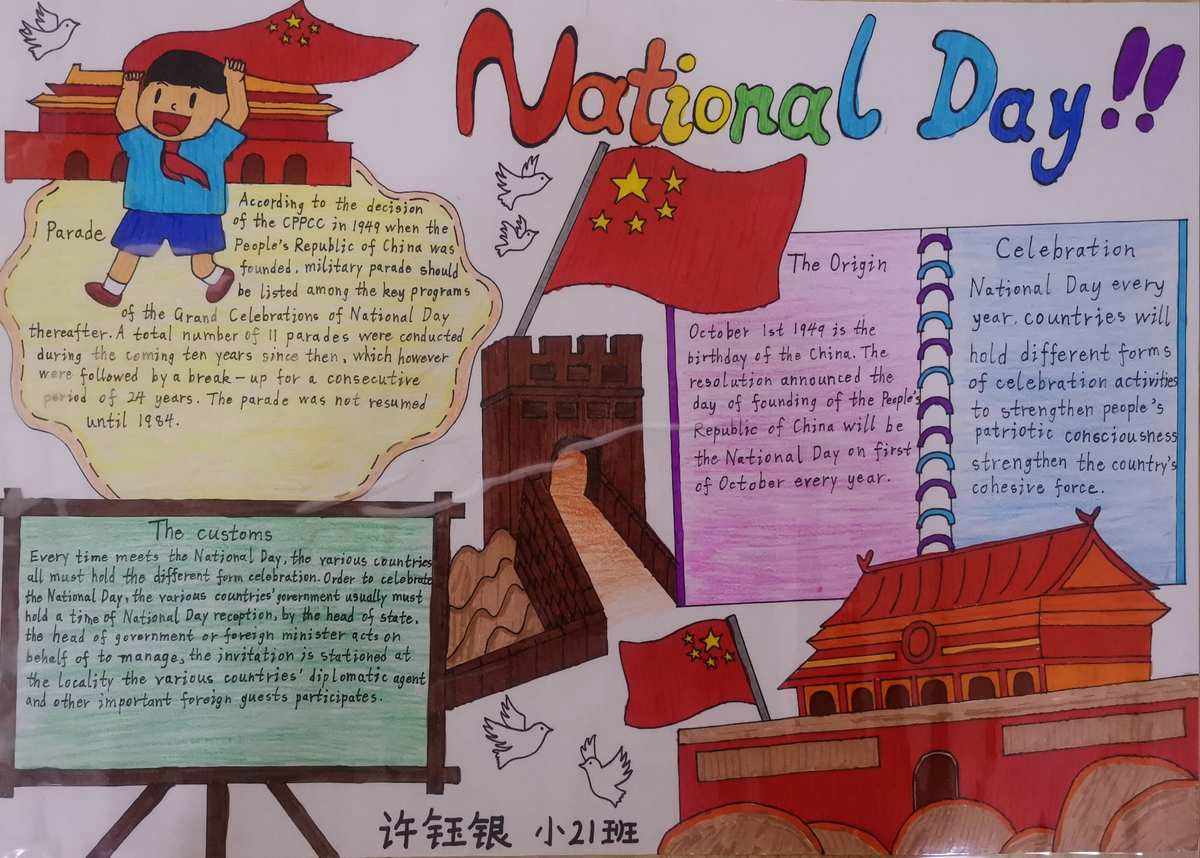 National Day!!
Parade
According to the decision
of the CPPCC in 1949 when the
People's Republic of China was
founded, military parade should
be listed among the key programs
of the Grand Celebrations of National Day
thereafter. A total number of 11 parades were conducted
during the coming ten years since then, which however
were followed by a break-up for a consecutive
period of 24 years. The parade was not resumed
until 1984.
The Origin
October 1st 1949 is the
birthday of the China. The
resolution announced the
day of founding of the People's
Republic of China will be
the National Day on first
of October every year.
Celebration
National Day every
year, countries will
hold different forms
of celebration activities
to strengthen people's
patriotic consciousness
strengthen the country's
cohesive force.
The customs
Every time meets the National Day, the various countries
all must hold the different form celebration. Order to celebrate
the National Day, the various countries' government usually must
hold a time of National Day reception, by the head of state,
the head of government or foreign minister acts on
behalf of to manage, the invitation is stationed at
the locality the various countries' diplomatic agent
and other important foreign guests participates.
许钰银 小21班